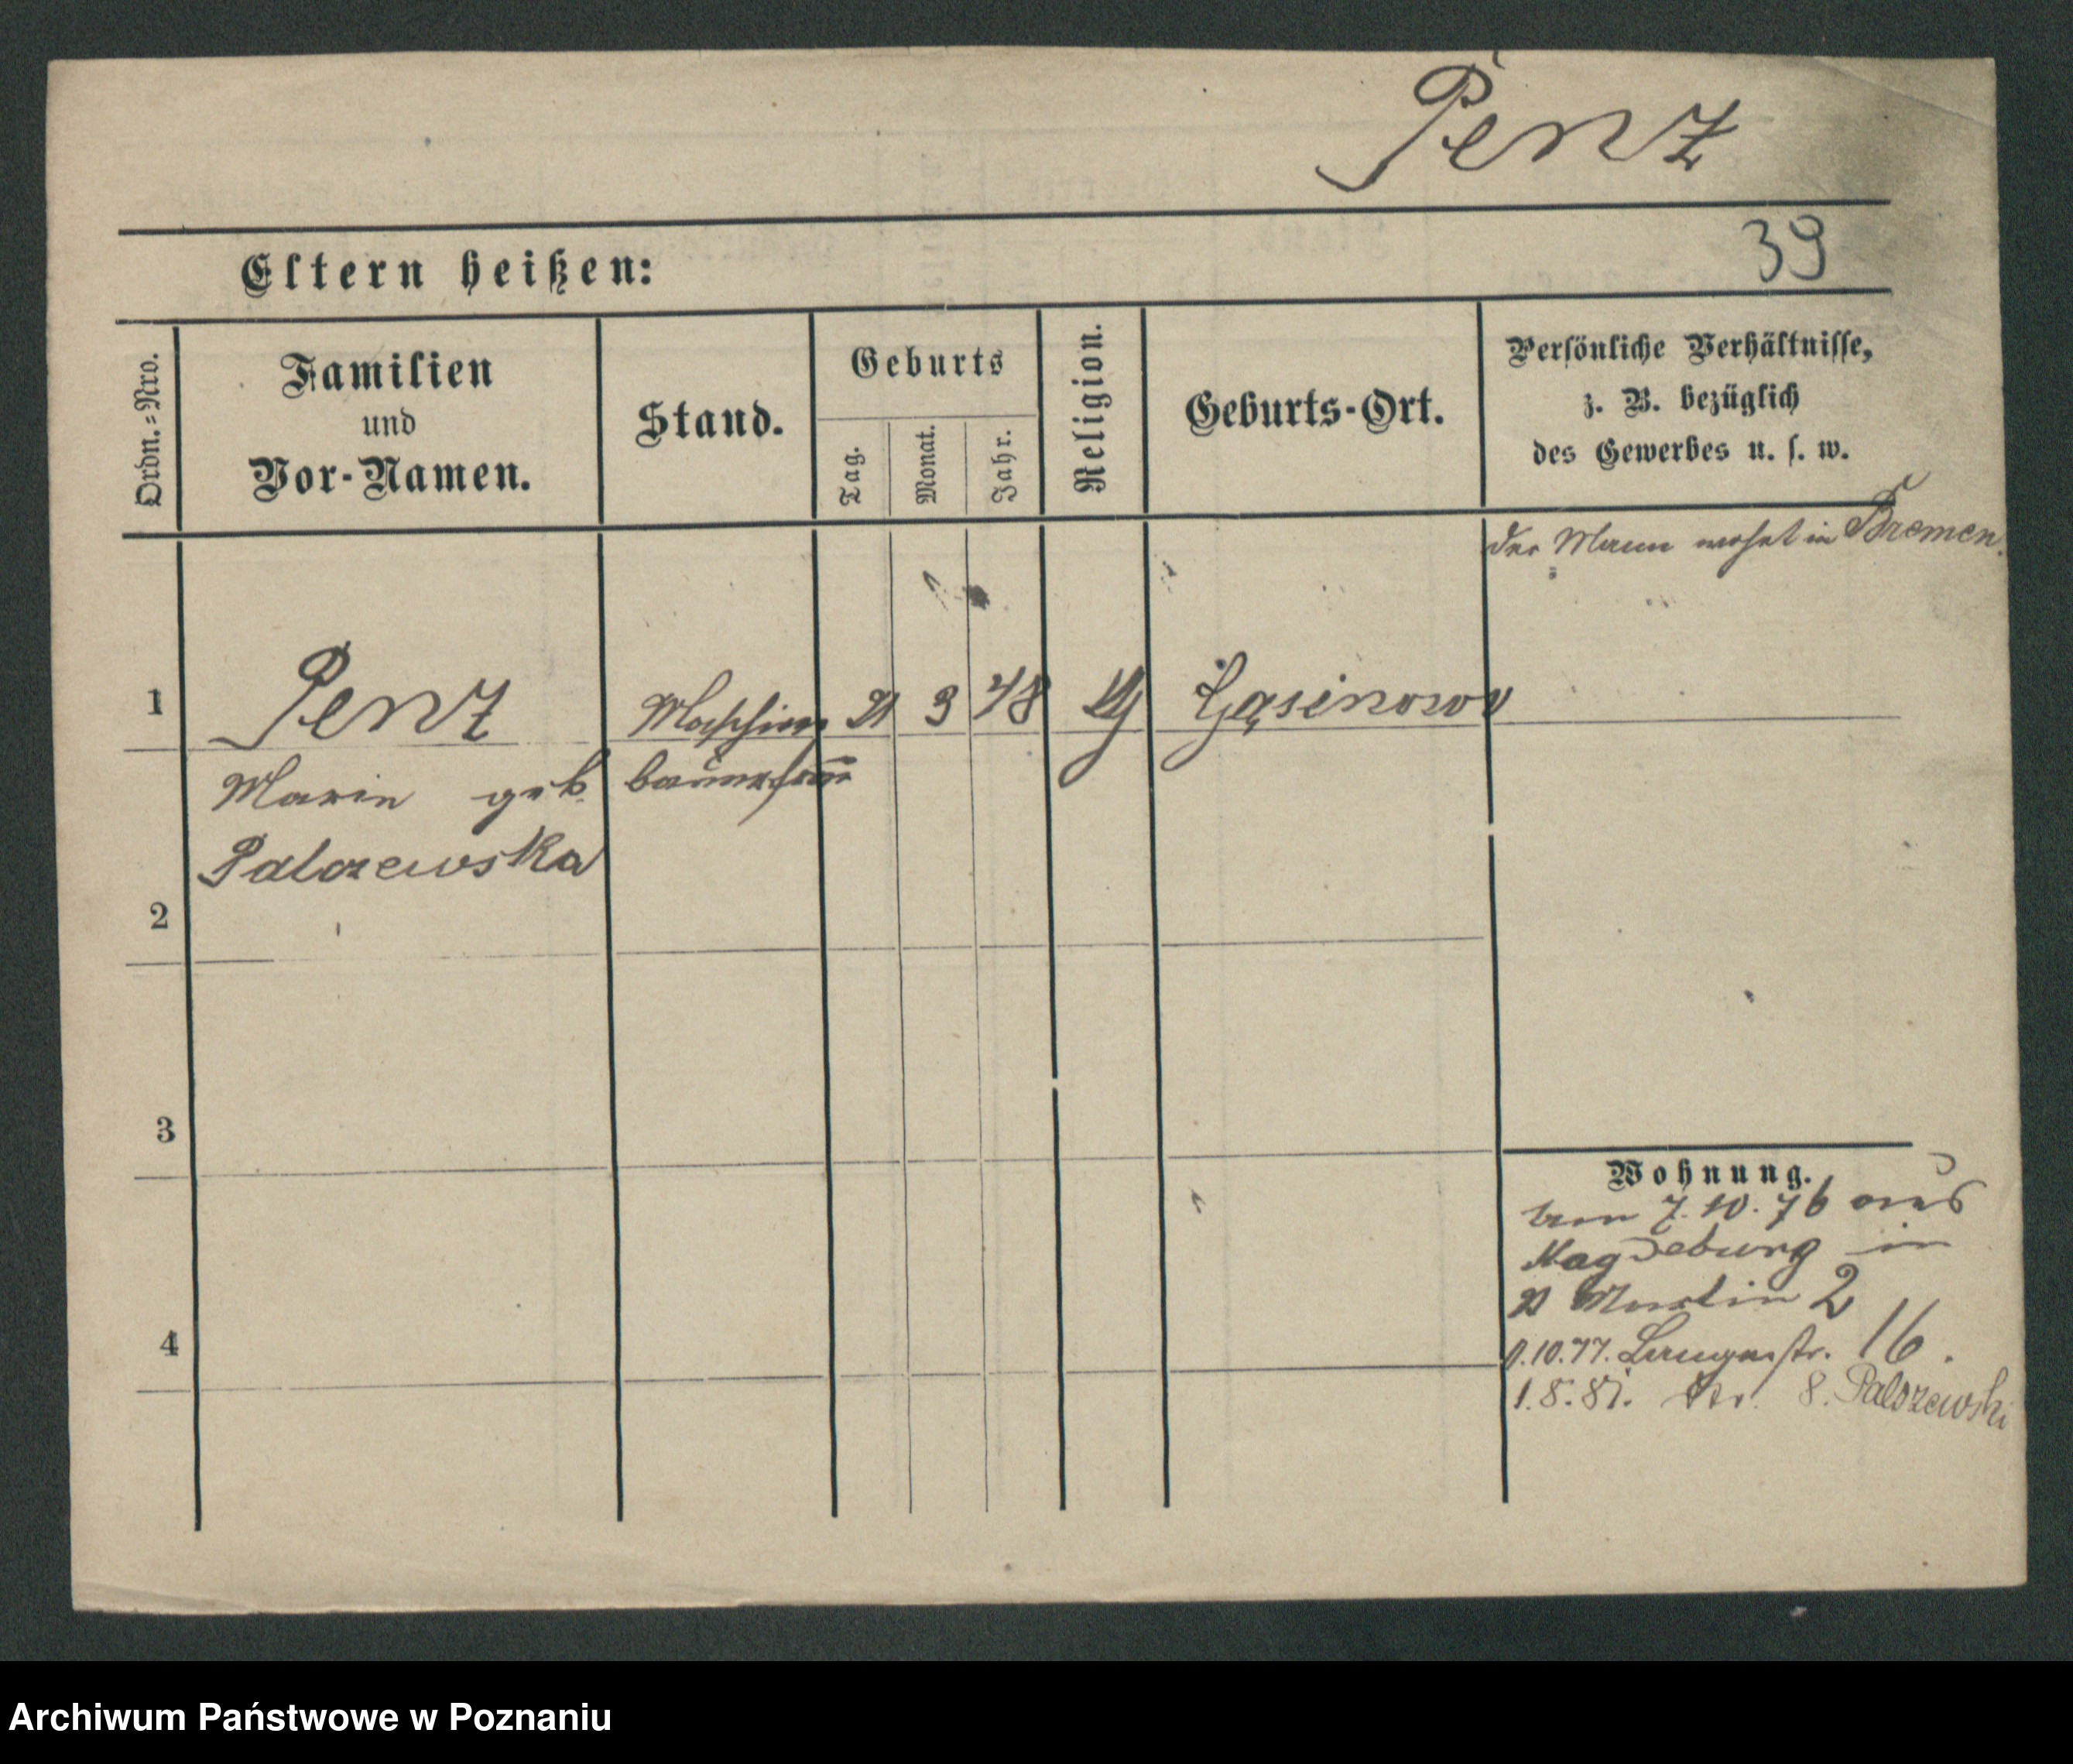 Penz
39
Eltern heißen:
Ordn.=Nro.
Familien
und
Vor-Namen.
Stand.
Geburts
Tag.
Monat.
Jahr.
Religion.
Geburts-Ort.
Persönliche Verhältnisse,
z. B. bezüglich
des Gewerbes u. s. w.
der Mann wohnt in Bremen.
1
Penz
Maschinen
21 3 48
Gąsinowo
Marie geb.
bauerfrau
Palczewska
2
3
4
Wohnung.
7.10.76 aus
Magdeburg in
St Martin 2
1.10.77. Langestr. 16.
1.8.81. Str. 8. Palczewski
Archiwum Państwowe w Poznaniu